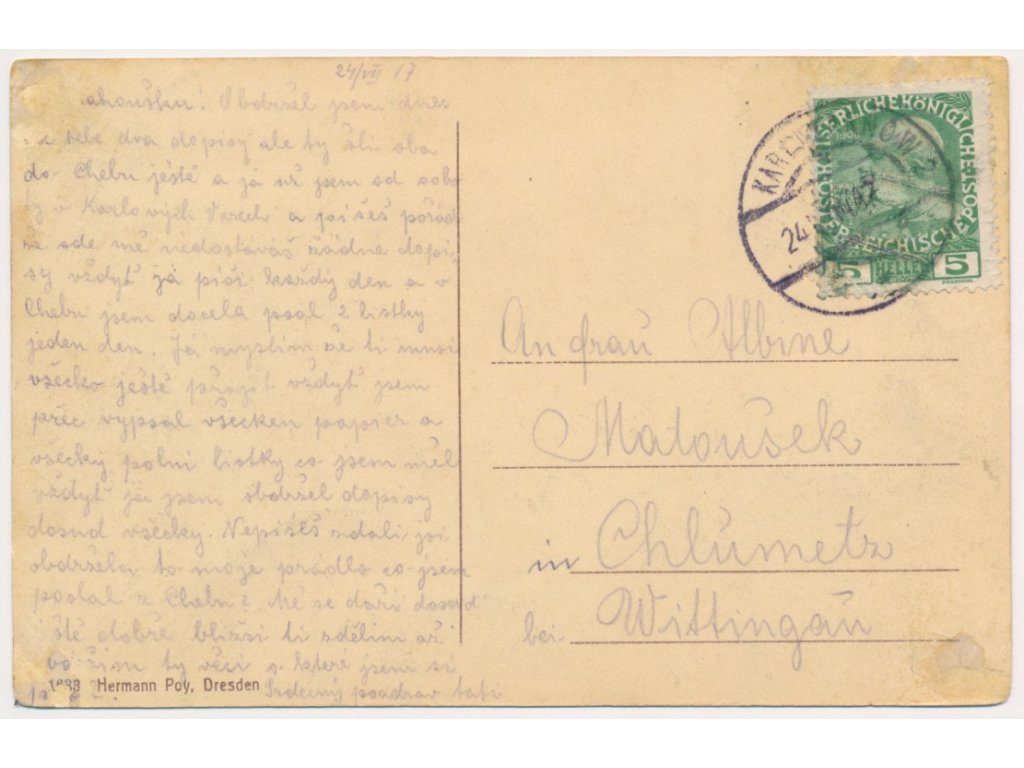 24/VII 17
Obdržel jsem dnes
tebe dva dopisy ale ty šli oba
do Chebu ještě a já už jsem od sobo
ty v Karlových Varech a píšeš pořád
že ode mě nedostáváš žádné dopi
sy vždyť já píši každý den a v
Chebu jsem docela psal 2 lístky
jeden den. Já myslím že ti musí
všecko ještě přijít vždyť jsem
přec vypsal všecken papier a
všecky polní lístky co jsem měl
vždyť já jsem obdržel dopisy
dosud všecky. Nepíšeš zdali jsi
obdržela to moje prádlo co jsem
poslal z Chebu? Mě se daří dosud
ště dobře bližší ti sdělím až
ty věci o které jsem si
Srdečný pozdrav
1683 Hermann Poy, Dresden
KAISERLICHE KÖNIGLICHE
ÖSTERREICHISCHE POST
5 HELLER 5
KARL
24
An Frau Albine
Matoušek
in Chlumetz
bei Wittingau